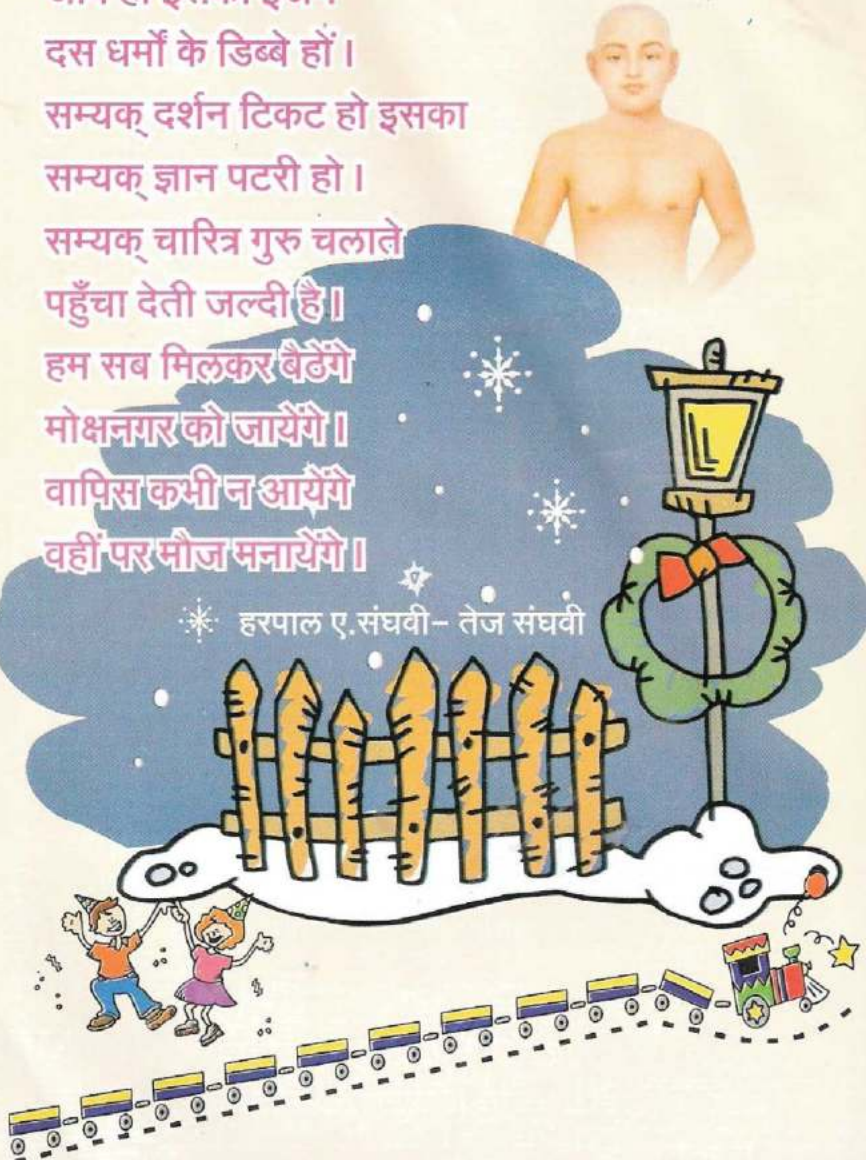 दस धर्मों के डिब्बे हों ।
सम्यक् दर्शन टिकट हो इसका
सम्यक् ज्ञान पटरी हो ।
सम्यक् चारित्र गुरु चलाते
पहुँचा देती जल्दी है ॥
हम सब मिलकर बैठेंगे
मोक्षनगर को जायेंगे ।
वापिस कभी न आयेंगे
वहीं पर मौज मनायेंगे ।
हरपाल ए.संघवी– तेज संघवी